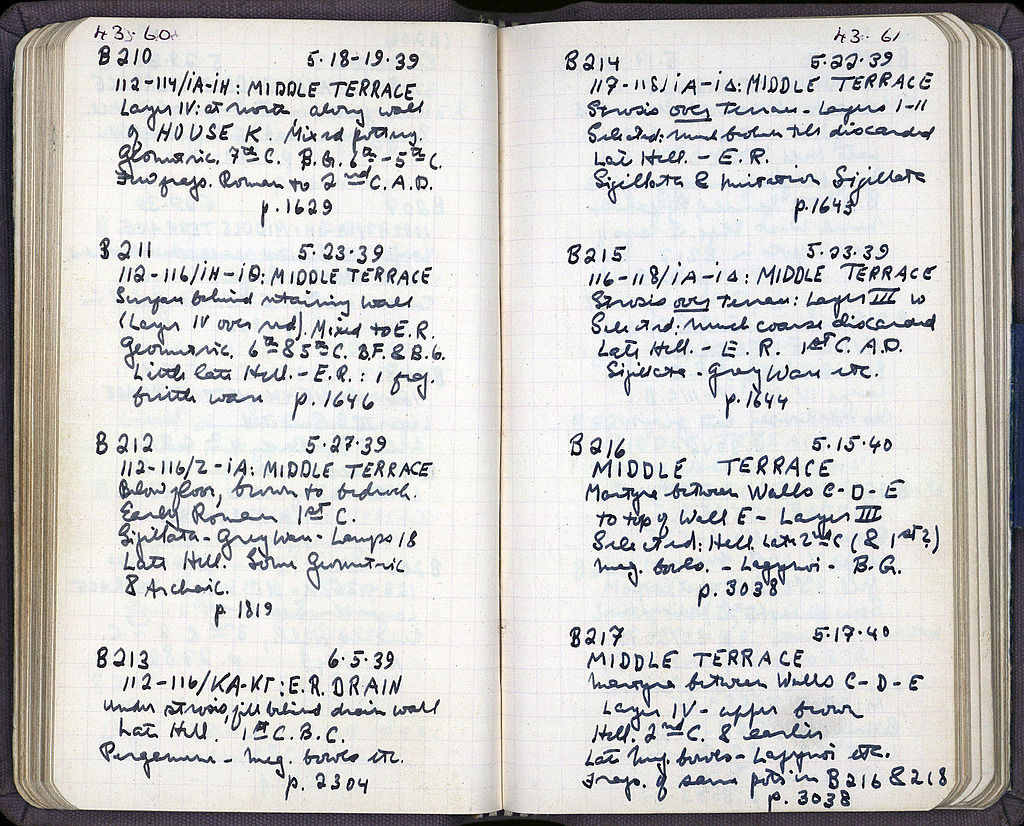 43-60
B 210 5·18-19·39
112-114/ΙΑ-ΙΗ: MIDDLE TERRACE
Layer IV: at north along wall
of HOUSE K. Mixed pottery.
Geometric. 7th C. B.G. 6th-5th C.
Two frags. Roman to 2nd C. A.D.
p. 1629
B 211 5·23·39
112-116/ΙΗ-ΙΘ: MIDDLE TERRACE
behind retaining wall
(Layer IV over red). Mixed to E.R.
Geometric. 6th & 5th C. B.F. & B.G.
Little late Hell. - E.R.: 1 frag.
ware p. 1646
B 212 5·27·39
112-116/Ζ-ΙΑ: MIDDLE TERRACE
Below floor, brown to bedrock.
Early Roman 1st C.
Sigillata - Grey Ware - Lamps 18
Late Hell. Some Geometric
& Archaic.
p 1819
B 213 6·5·39
112-116/ΚΑ-ΚΓ: E.R. DRAIN
Under strosis, fill behind drain wall
Late Hell. 1st C. B.C.
Pergamene - Meg. bowls etc.
p. 2304
43-61
B 214 5·22·39
117-118/ΙΑ-ΙΔ: MIDDLE TERRACE
Strosis over Terran - Layers I-II
Selected: much broken tile discarded
Late Hell. - E.R.
Sigillata & imitation Sigillata
p. 1643
B 215 5·23·39
116-118/ΙΑ-ΙΔ: MIDDLE TERRACE
Strosis over Terran: Layer III
Selected: much coarse discarded
Late Hell. - E.R. 1st C. A.D.
Sigillata - Grey Ware etc.
p. 1644
B 216 5·15·40
MIDDLE TERRACE
Martyra between Walls C-D-E
to top of Wall E - Layer III
Selected: Hell. late 2nd C (& 1st?)
Meg. bowls. - Lagynoi - B.G.
p. 3038
B 217 5·17·40
MIDDLE TERRACE
Martyra between Walls C-D-E
Layer IV - upper brown
Hell. 2nd C. & earlier
Late Meg. bowls - Lagynoi etc.
Frags. of same pots in B 216 & 218
p. 3038